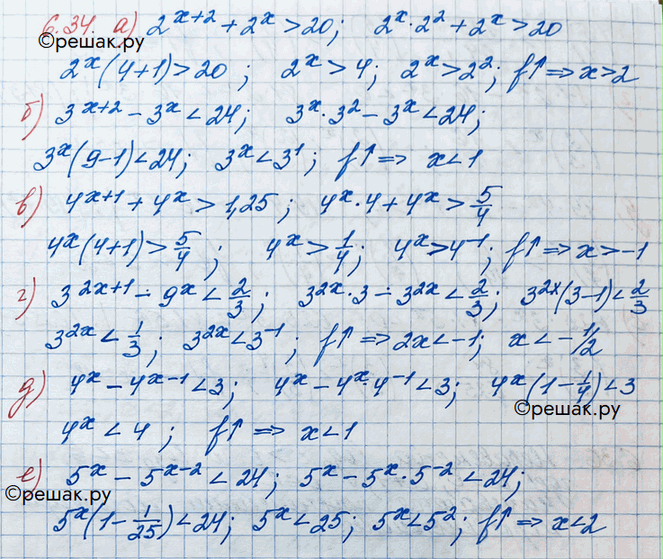 6.34. а) 2^{x+2} + 2^x > 20; 2^x · 2^2 + 2^x > 20
©решак.ру
2^x(4+1) > 20; 2^x > 4; 2^x > 2^2; f↑ => x > 2
б) 3^{x+2} - 3^x < 24; 3^x · 3^2 - 3^x < 24;
3^x(9-1) < 24; 3^x < 3^1; f↑ => x < 1
в) 4^{x+1} + 4^x > 1,25; 4^x · 4 + 4^x > 5/4
4^x(4+1) > 5/4; 4^x > 1/4; 4^x > 4^{-1}; f↑ => x > -1
г) 3^{2x+1} - 9^x < 2/3; 3^{2x} · 3 - 3^{2x} < 2/3; 3^{2x}(3-1) < 2/3
3^{2x} < 1/3; 3^{2x} < 3^{-1}; f↑ => 2x < -1; x < -1/2
д) 4^x - 4^{x-1} < 3; 4^x - 4^x · 4^{-1} < 3; 4^x(1 - 1/4) < 3
©решак.ру
4^x < 4; f↑ => x < 1
е) 5^x - 5^{x-2} < 24; 5^x - 5^x · 5^{-2} < 24;
©решак.ру
5^x(1 - 1/25) < 24; 5^x < 25; 5^x < 5^2; f↑ => x < 2